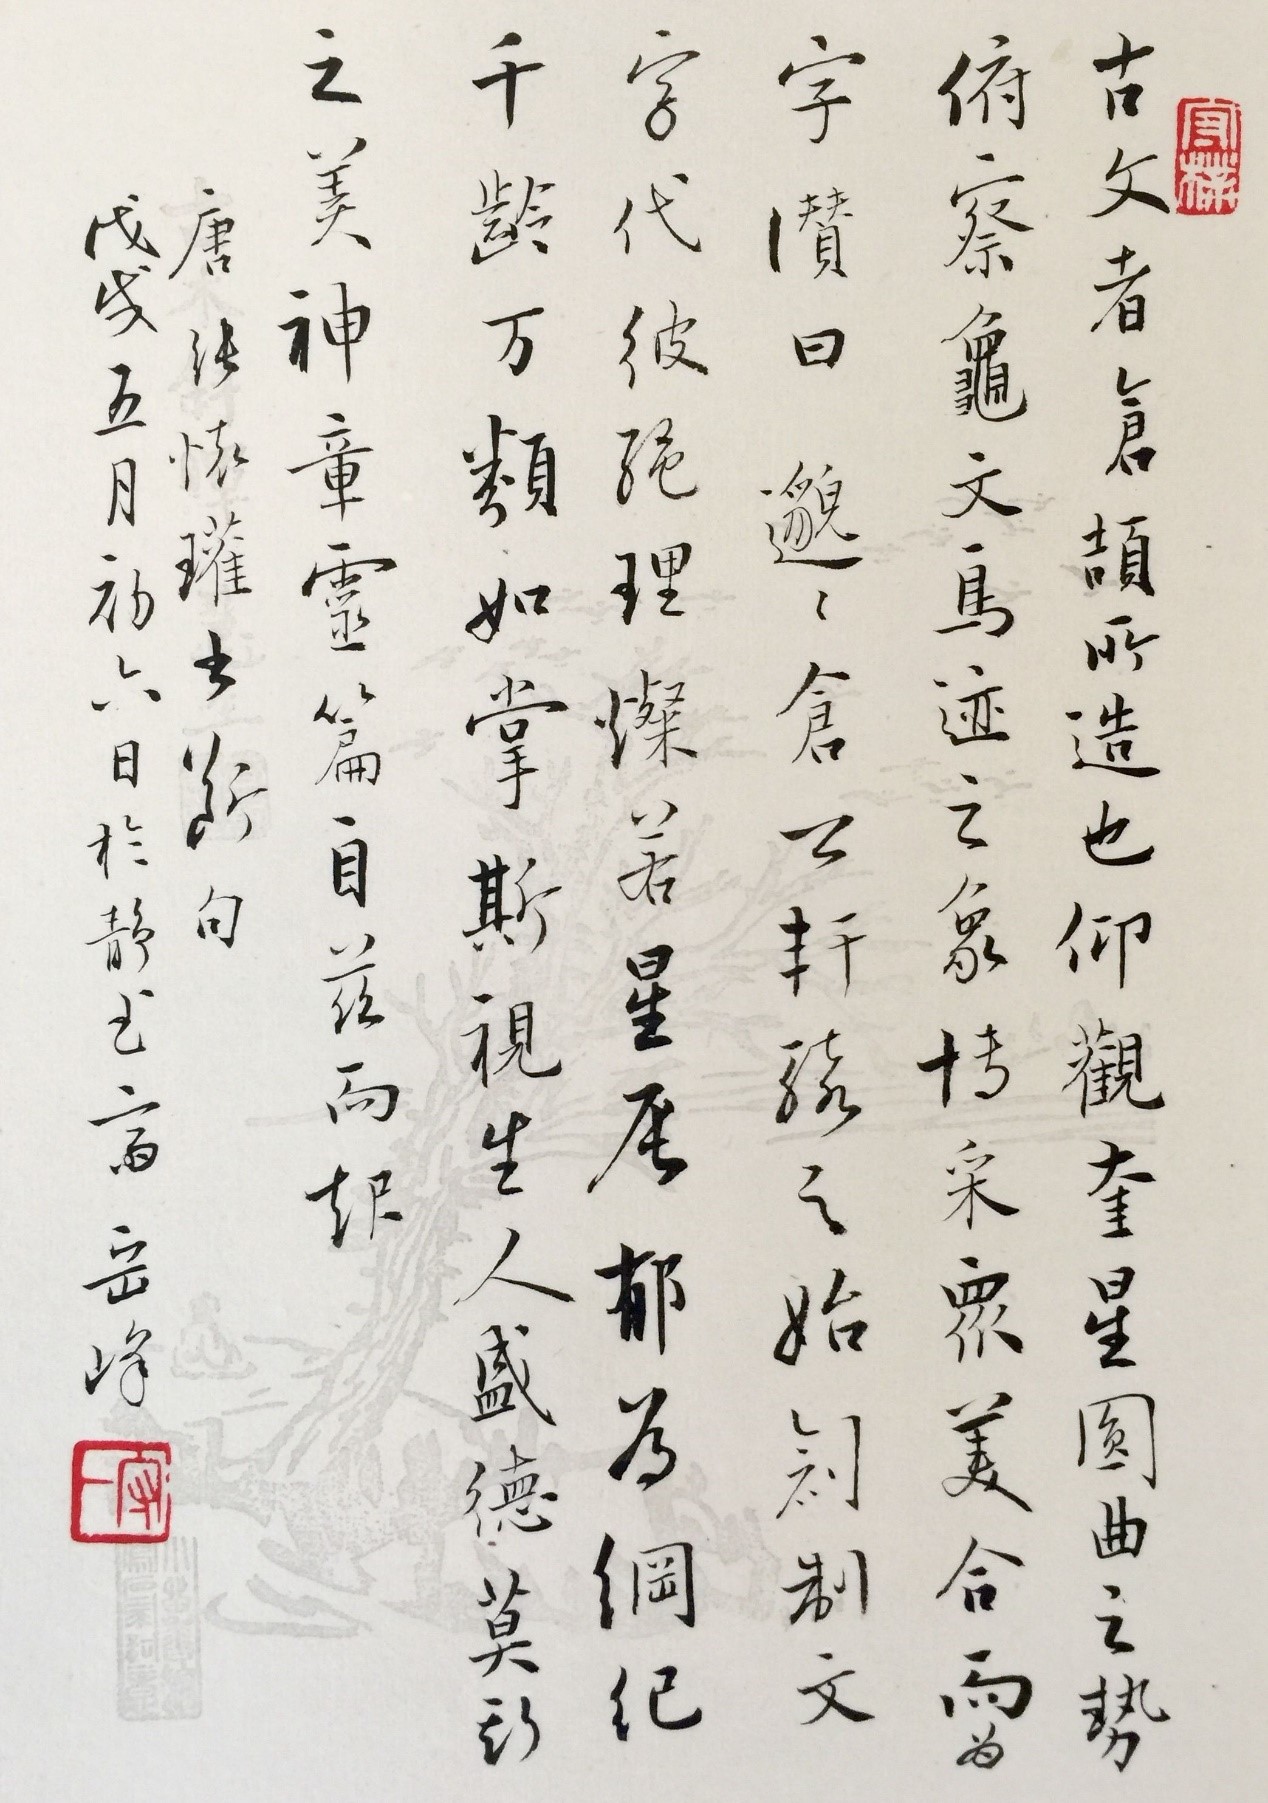 古文者倉頡所造也仰觀奎星圓曲之勢
俯察龜文鳥迹之象博采眾美合而為
字讚曰邈〻倉公軒轅之始創制文
字代彼繩理燦若星辰郁為綱紀
千齡万類如掌斯視生人盛德莫斯
之美神章靈篇自茲而起
唐張懷瓘書斷句
戊戌五月初六日於靜
岳峰